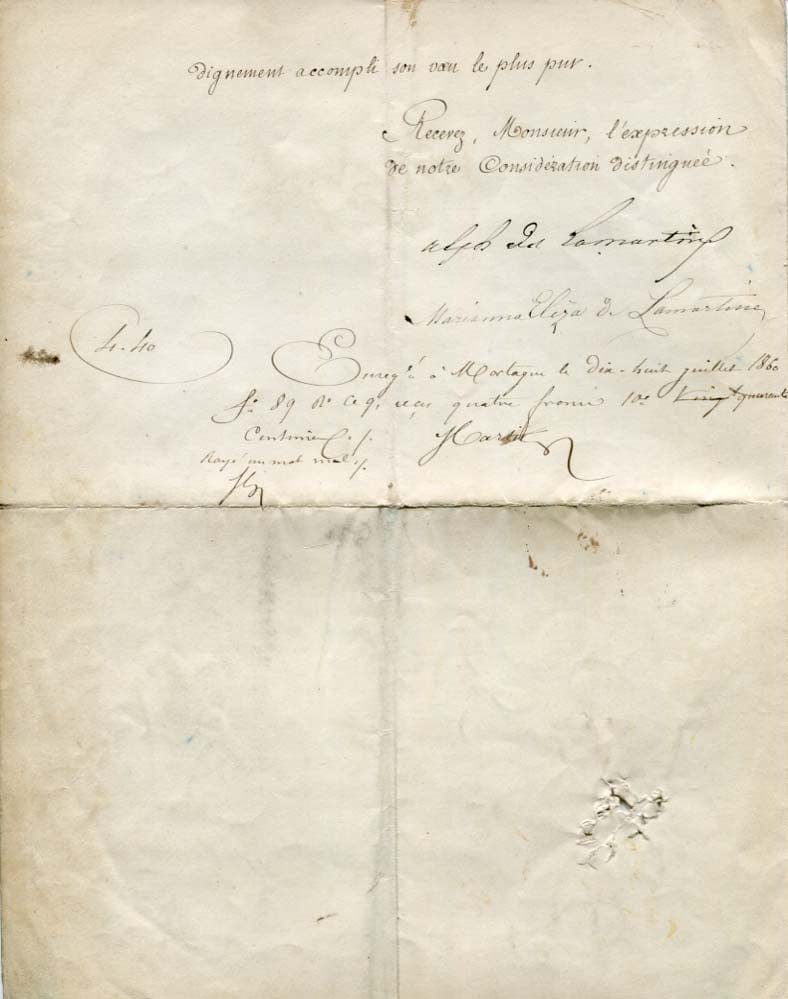 dignement accompli son vœu le plus pur.
Recevez, Monsieur, l'expression
de notre Considération distinguée.
Alph de Lamartine
Marianna Eliza de Lamartine
4.40
Enreg. à Mortagne le dix-huit juillet 1860
fo 89 Ro Ce 9, reçu quatre francs 10e vingt quarante
Centimes
Rayé un mot nul